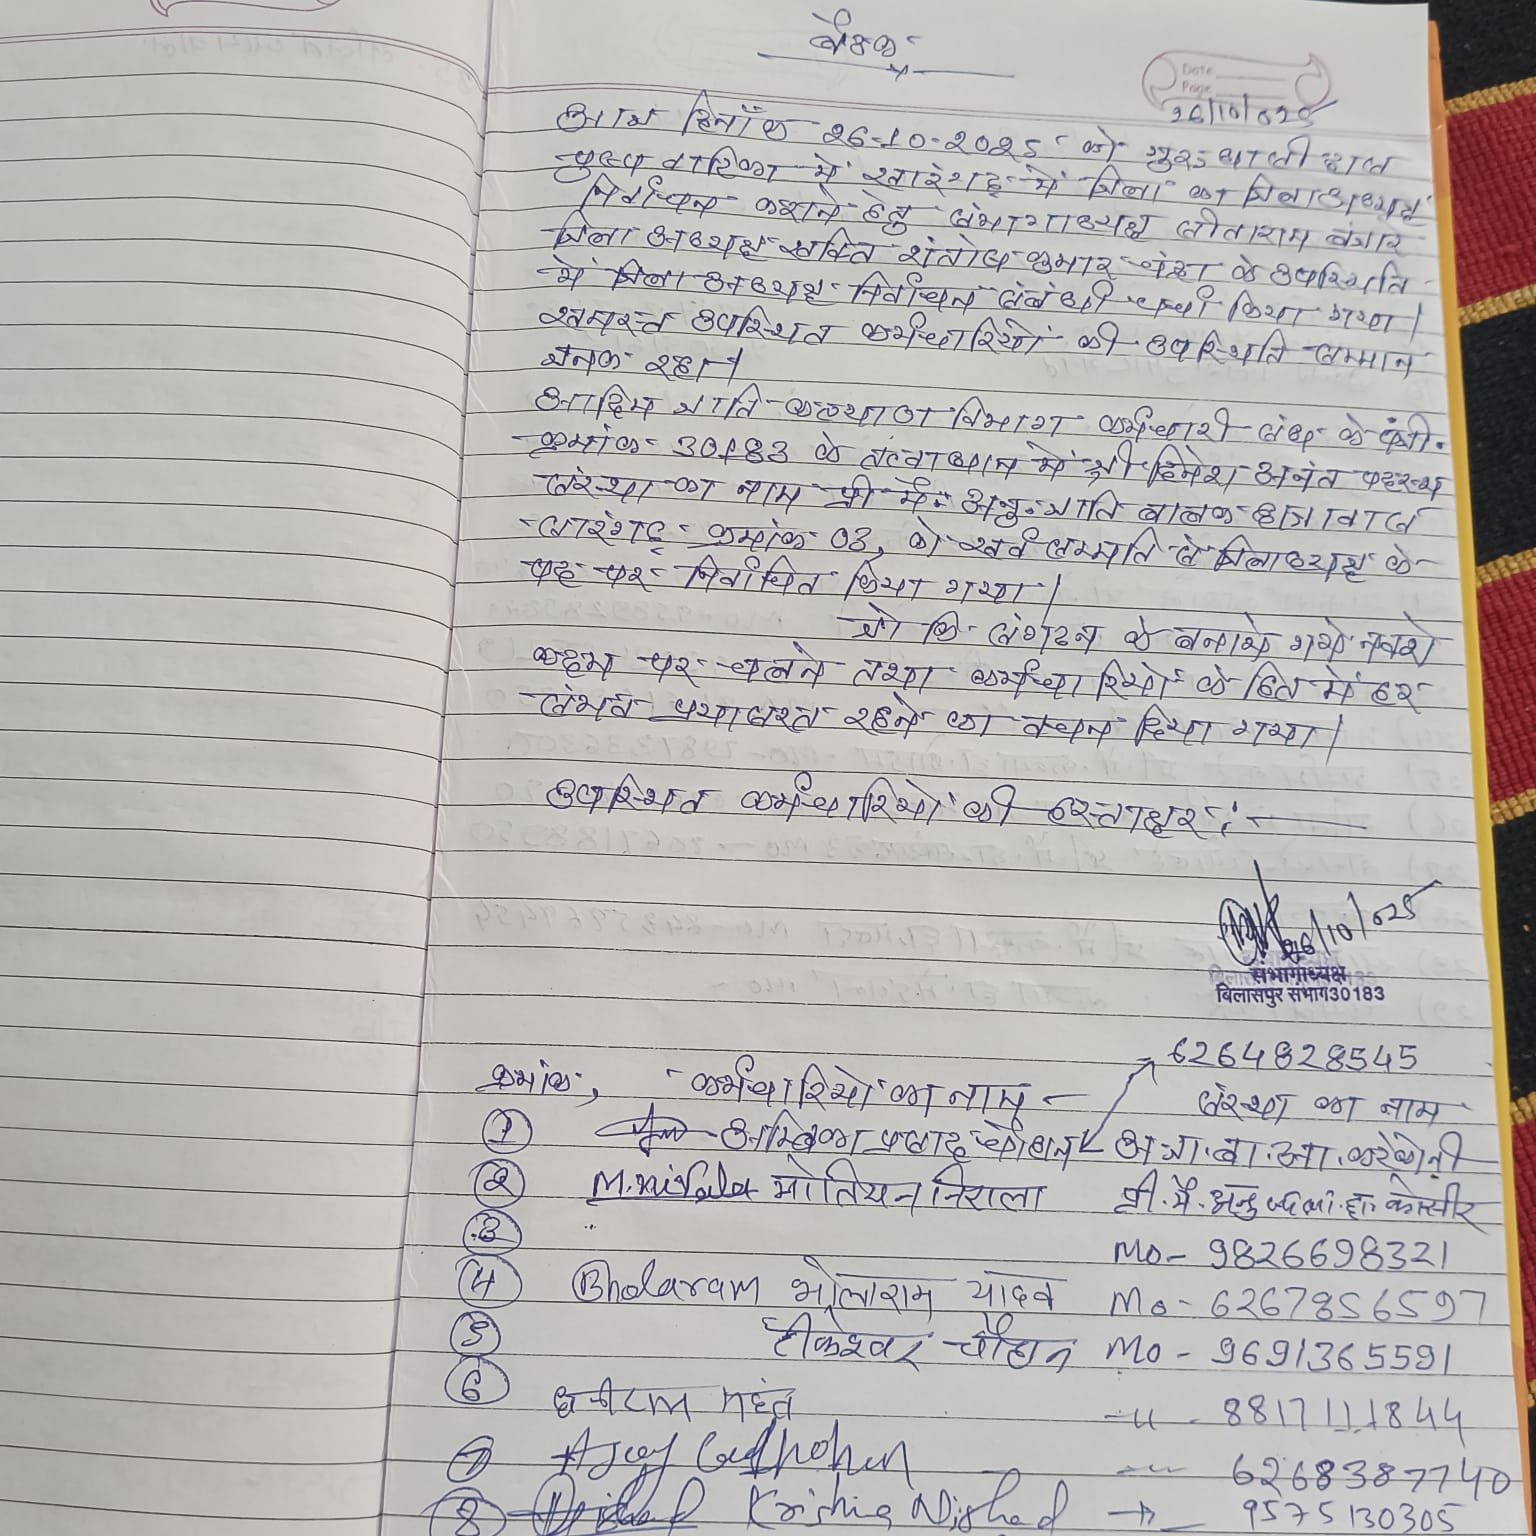 बैठक
Date
Page
26/10/025
आज दिनाँक 26-10-2025 को गुरु घासी दास
पुष्प वाटिका में सारंगढ़ में जिला का जिला अध्यक्ष
निर्वाचन कराने हेतु संभागाध्यक्ष सीताराम बंजारे
जिला अध्यक्ष सक्ति संतोष कुमार चंद्रा के उपस्थिति
में जिला अध्यक्ष निर्वाचन संबंधी चर्चा किया गया।
समस्त उपस्थित कर्मचारियों की उपस्थिति सम्मान
जनक रहा।
आदिम जाति कल्याण विभाग कर्मचारी संघ के पंजी.
क्रमांक 30183 के तत्वाधान में श्री हिमेश अनंत पदस्थ
संस्था का नाम प्री मै. अनु. जाति बालक छात्रावास
सारंगढ़ क्रमांक 03, को सर्व सम्मति से जिलाध्यक्ष के
पद पर निर्वाचित किया गया।
जो कि संगठन के बनाये गये नक्शे
कदम पर चलने तथा कर्मचारियों के हित में हर
संभव प्रयासरत रहने का वचन दिया गया।
उपस्थित कर्मचारियों की हस्ताक्षर :-
26/10/025
संभागाध्यक्ष
बिलासपुर संभाग30183
6264828545
क्रमांक, कर्मचारियों का नाम - संस्था का नाम
1 अम्बिका प्रसाद चौहान अ.जा.बा.आ.
2 M.nirala मोतियन निराला प्री.मै.अनु कोसीर
3 " Mo- 9826698321
4 Bholaram भोलाराम यादव Mo- 6267856597
5 टीकेश्वर चौहान Mo- 9691365591
6 छबीराम महंत -"- 8817111844
7 Ajay -"- 6268387740
8 Krishna Nishad -"- 9575130305